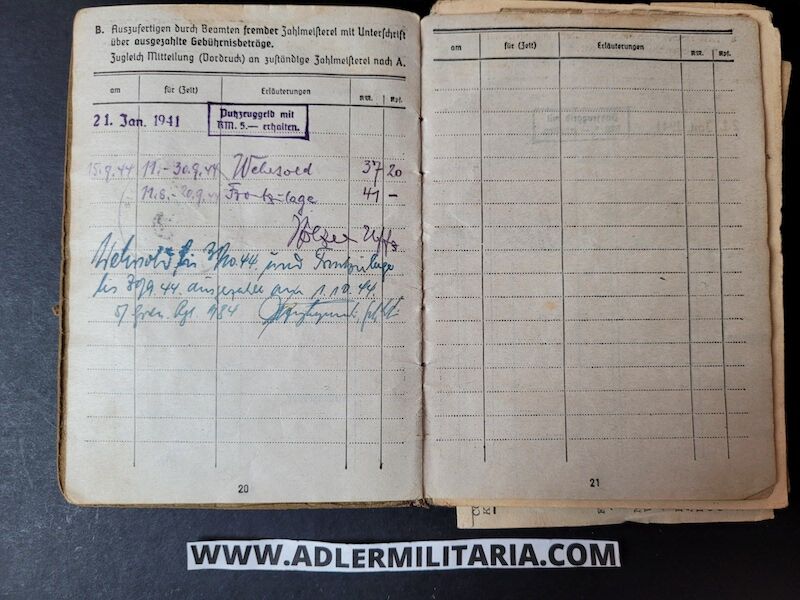 B. Auszufertigen durch Beamten fremder Zahlmeisterei mit Unterschrift
über ausgezahlte Gebührnisbeträge.
Zugleich Mitteilung (Vordruck) an zuständige Zahlmeisterei nach A.
am für (Zeit) Erläuterungen RM. Rpf.
21. Jan. 1941 Putzzeuggeld mit
RM. 5.— erhalten.
15.9.44 11.-30.9.44 Wehrsold 37 20
11.8.-20.9.44 Frontzulage 41 -
Uffz
Wehrsold bis 31.10.44 und Frontzulage
bis 30.9.44 ausgezahlt am 1.10.44
Gren. Rgt. 984
20
am für (Zeit) Erläuterungen RM. Rpf.
21
WWW.ADLERMILITARIA.COM